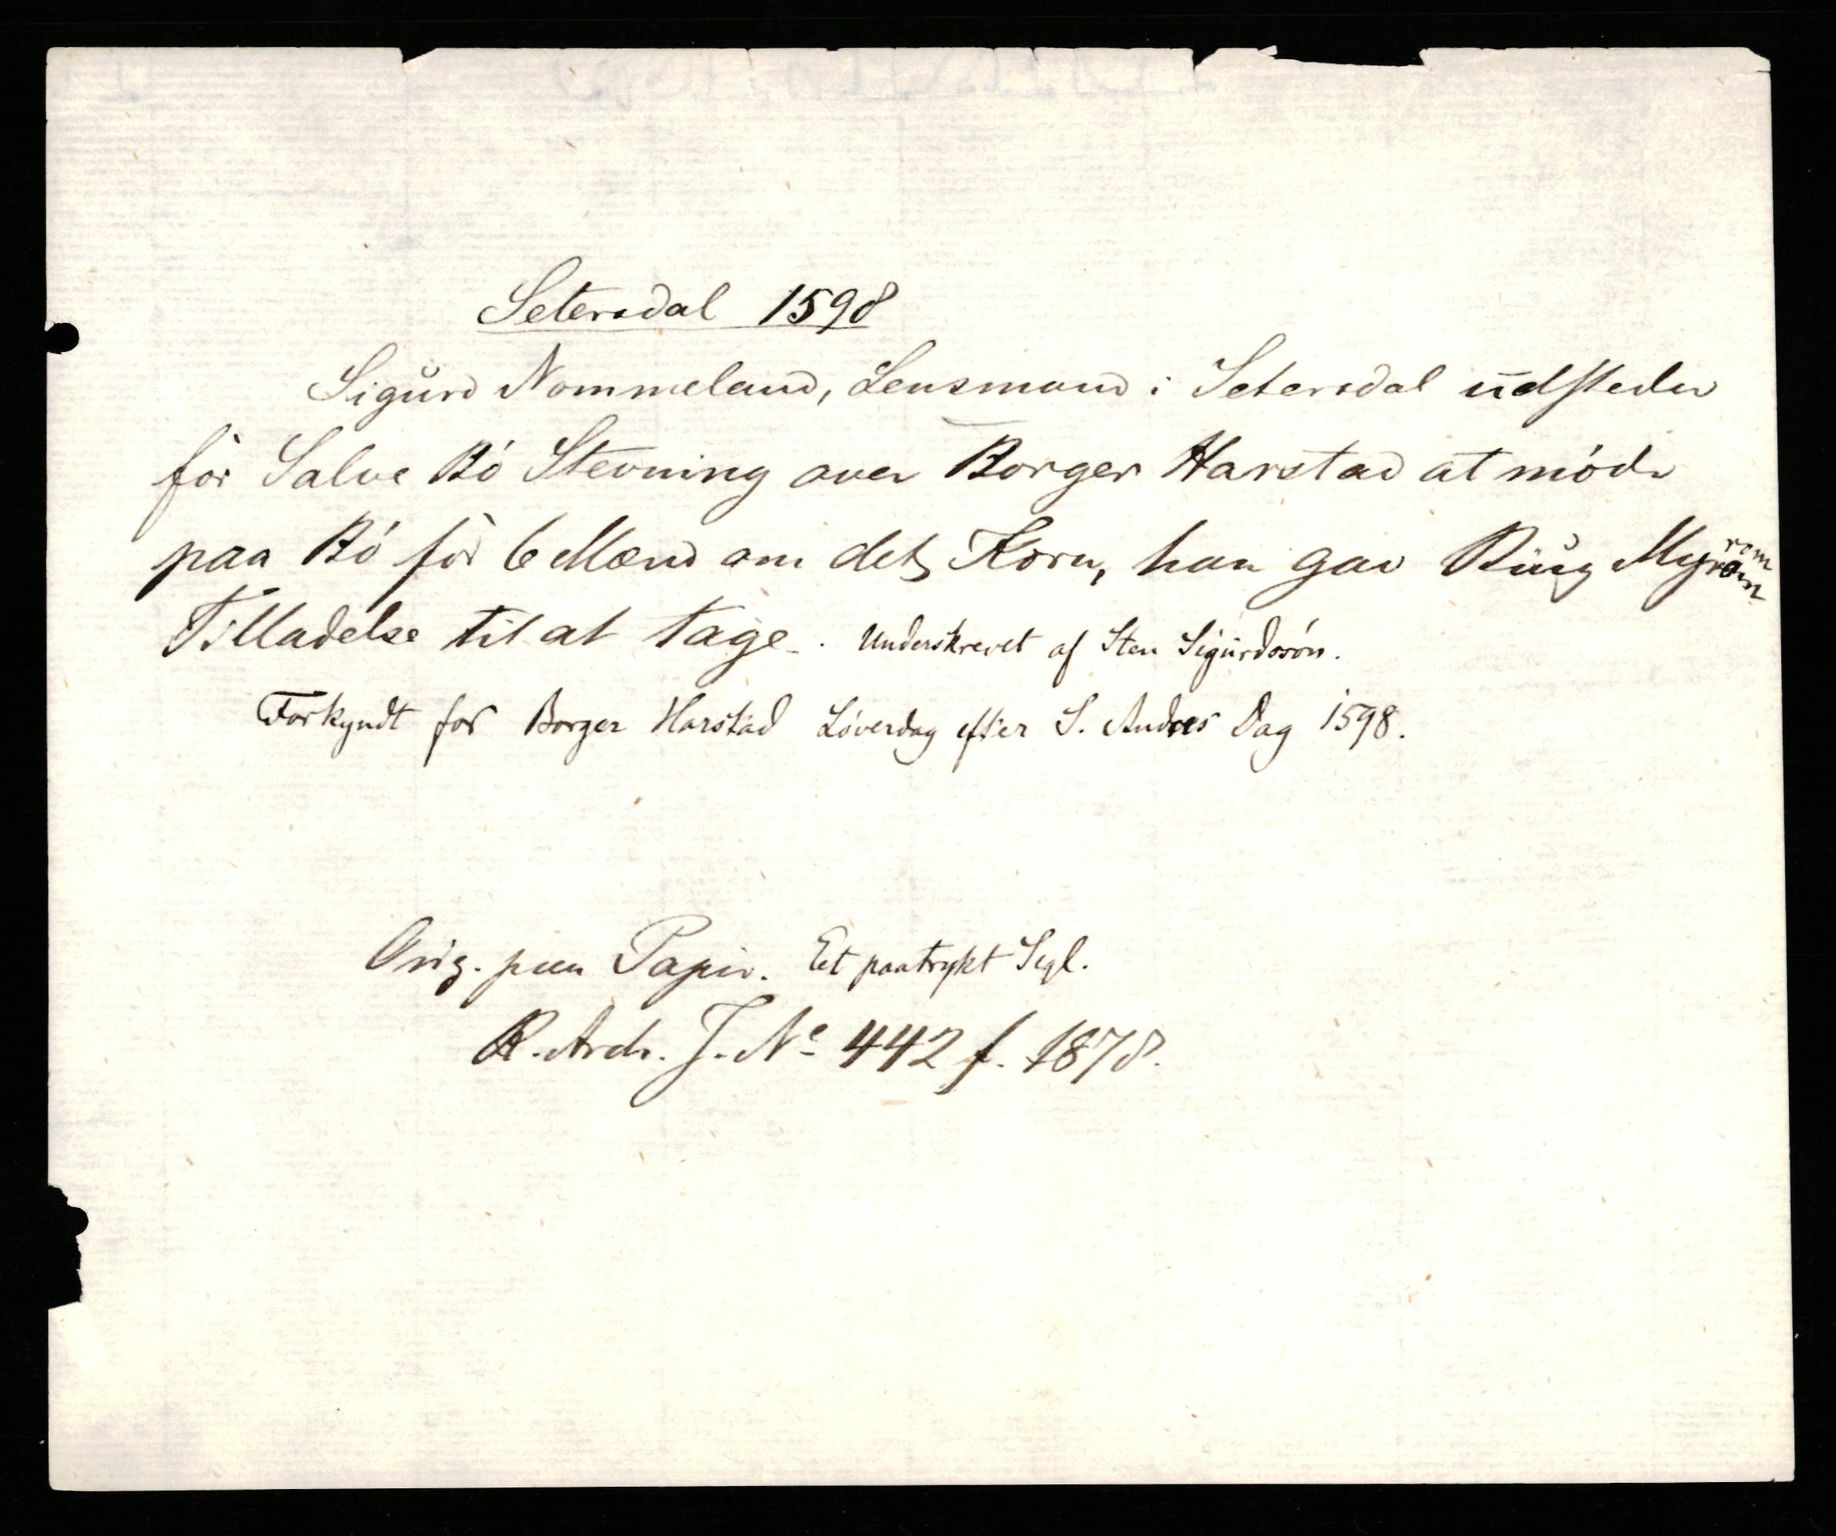 Setersdal 1598
Sigurd Nommeland, Lensmand i Setersdal udsteder
for Salve Bó Stevning over Borger Harstad at móde
paa Bó for 6 Mænd om det Korn, han gav Myrom
rom
Tilladelse til at tage. Underskrevet af Sten Sigurdssón.
Forkyndt for Borger Harstad Lóverdag efter S. Andres Dag 1598.
Orig. paa Papir. Eet paatrykt Segl.
R. Arch. J. No 442 f. 1878.